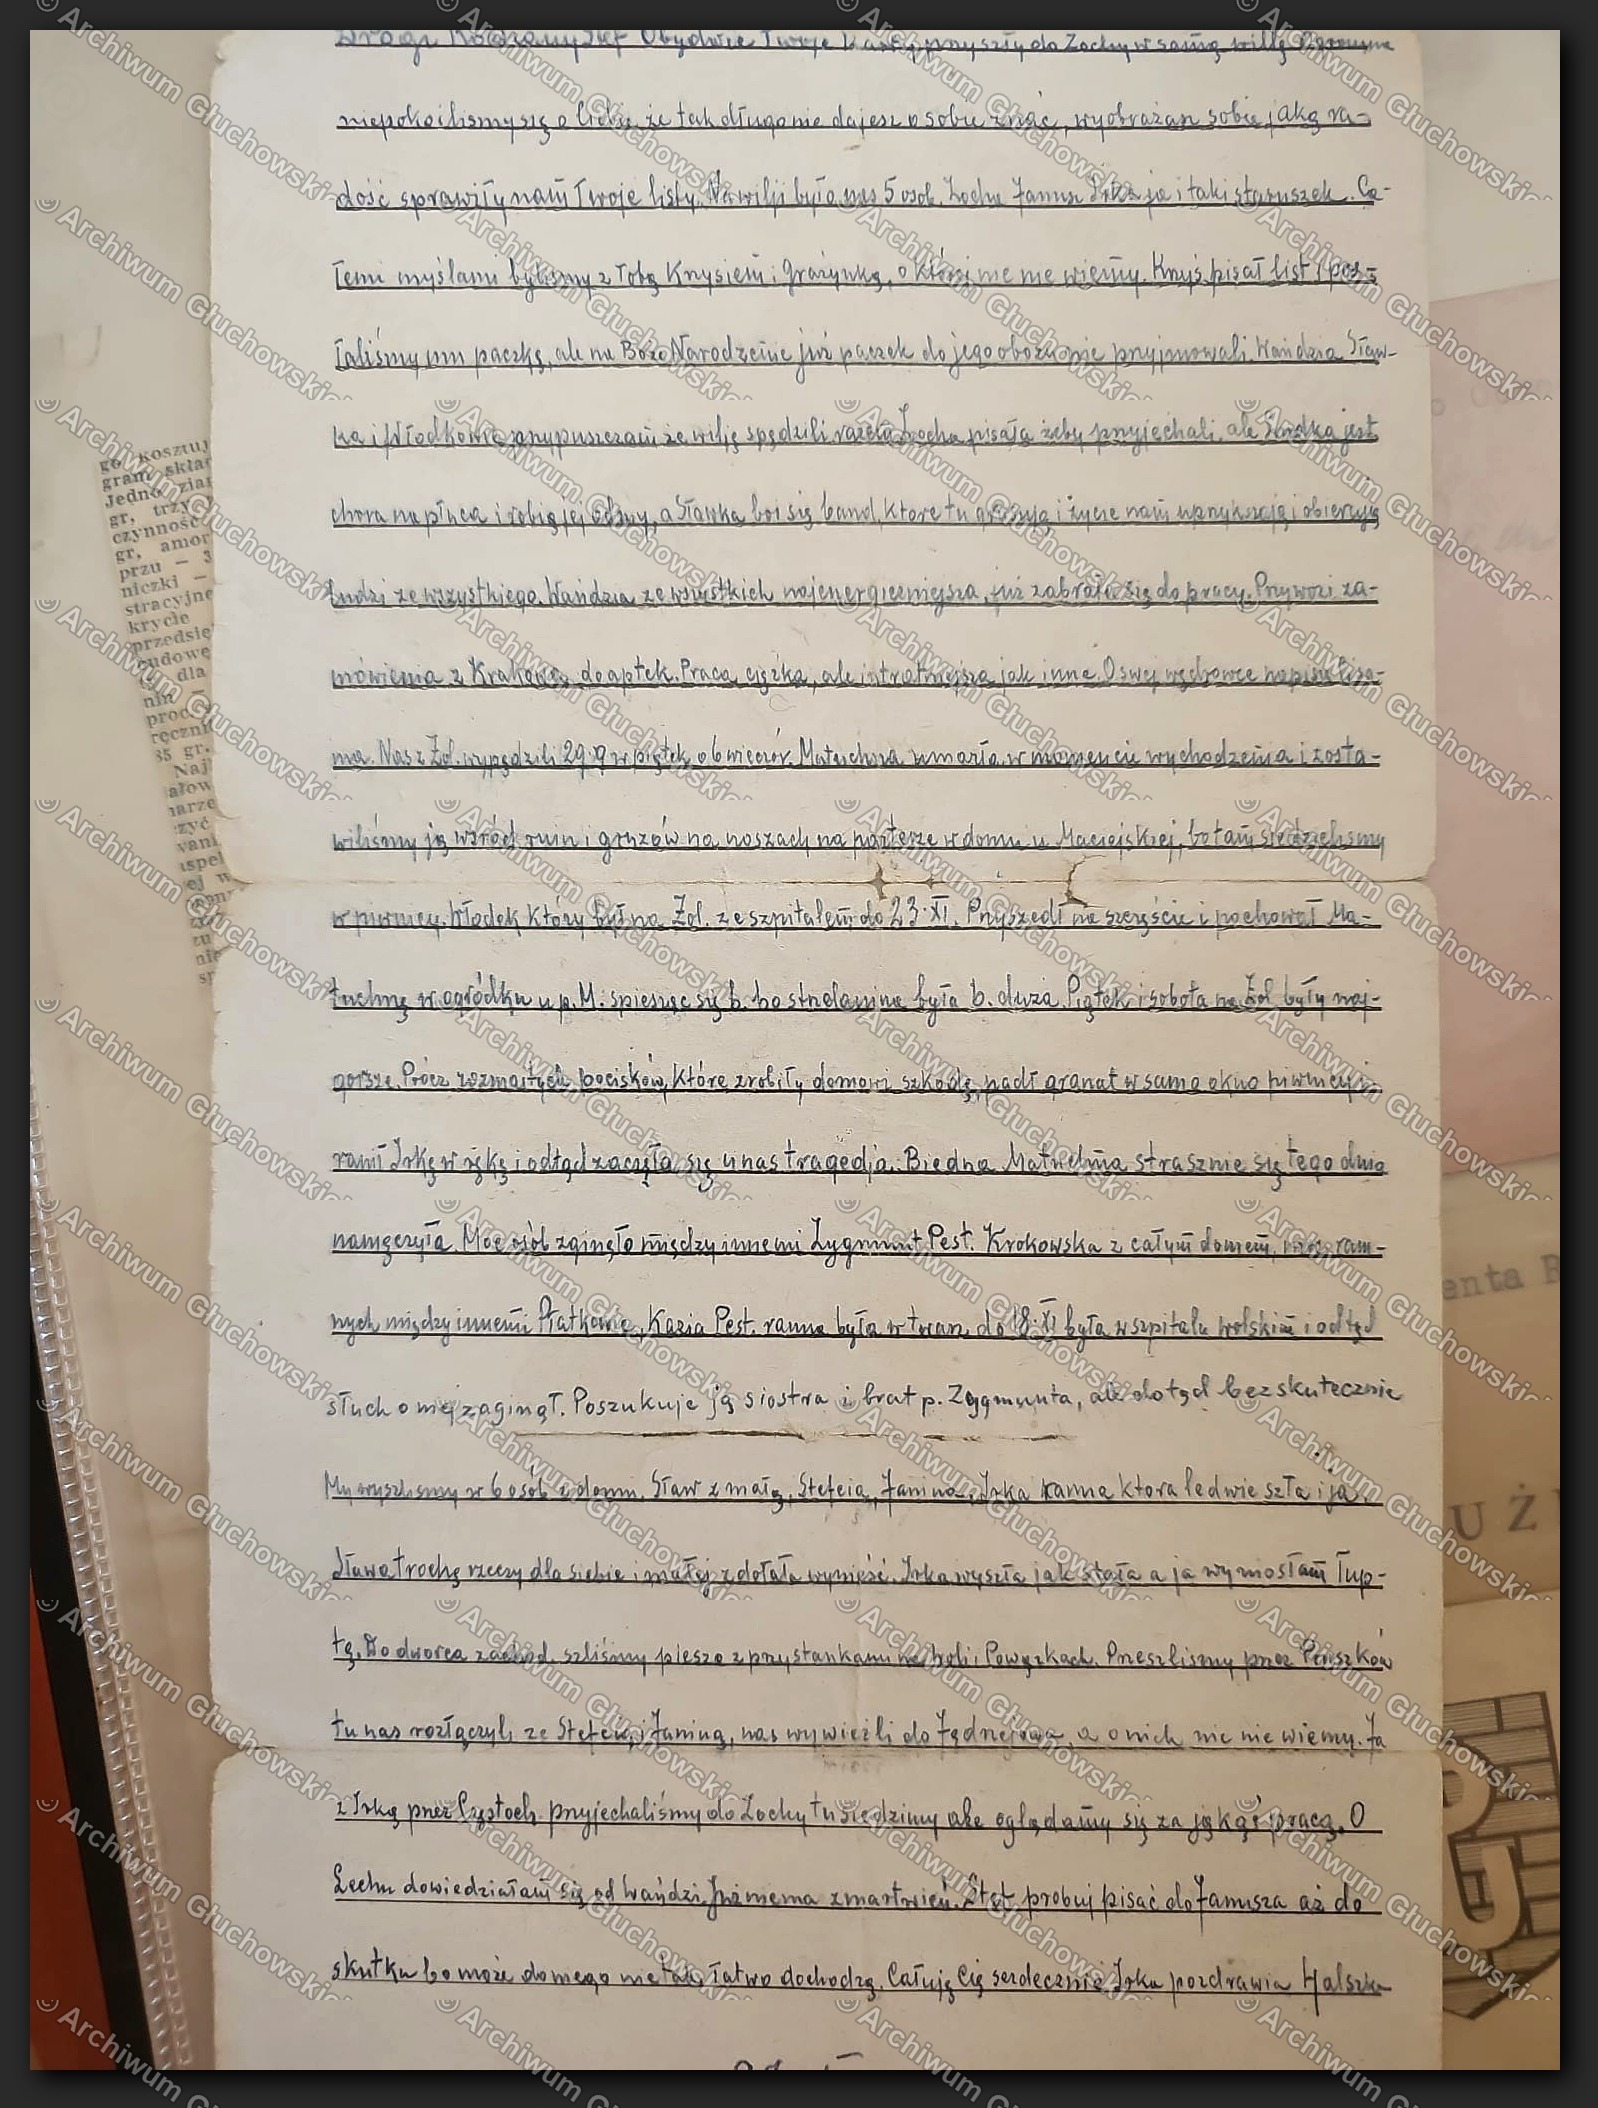 Drogi Kochany Stef Obydwie Twoje karty przyszły do Zochy w samą wilję
niepokoiliśmy się o Ciebie że tak długo nie dajesz o sobie znać, wyobrażasz sobie, jaką ra-
dość sprawiły nam Twoje listy. Na wilji było nas 5 osób. Zocha Janusz Irka ja i taki staruszek. Ca-
łemi myślami byliśmy z Tobą Krysiem i Grażynką, o której nic nie wiemy. Kryś pisał list i pos-
łaliśmy mu paczkę, ale na Boże Narodzenie już paczek do jego obozu nie przyjmowali. Wańdzia Sław-
ka i Włodkowie przypuszczam że wilję spędzili razem. Zocha pisała żeby przyjechali, ale jest
chora na płuca i robią jej odmy, a Sławka boi się band, które tu grasują i życie nam uprzykrzają i obierają
ludzi ze wszystkiego. Wańdzia ze wszystkich najenergiczniejsza, już zabrała się do pracy. Przywozi za-
mówienia z Krakowa do aptek. Praca ciężka, ale intratniejsza jak inne. O swej wędrówce napisała sa-
ma. Nas z Żol. wypędzili 29.9 w piątek o 6 wieczór. Matuchna umarła w momencie wychodzenia i zosta-
wiliśmy ją wśród ruin i gruzów na noszach na parterze w domu u Maciejskiej, bo tam siedzieliśmy
w piwnicy. Włodek który był na Żol. ze szpitalem do 23.XI. Przyszedł na szczęście i pochował Ma-
tuchnę w ogródku u p. M. spiesząc się b. bo strzelanina była b. duża. Piątek i sobota na Żol. były naj-
gorsze. Prócz rozmaitych pocisków, które zrobiły domowi szkodę, padł granat w samo okno piwnicy i
ranił Irkę w rękę i odtąd zaczęła się u nas tragedja. Biedna Matuchna strasznie się tego dnia
namęczyła. Moc osób zginęło między innemi Zygmunt Pest. Krokowska z całym domem, moc ran-
nych między innemi Piątkowie, Kazia Pest. ranna była w twarz, do 18.XI była w szpitalu wolskim i odtąd
słuch o niej zaginął. Poszukuje ją siostra i brat p. Zygmunta, ale dotąd bezskutecznie
My wyszliśmy w 6 osób z domu. Sław z małą, Stefcia, Janina, Irka ranna która ledwie szła i ja.
Sława trochę rzeczy dla siebie i małej zdołała wynieść. Irka wyszła jak stała a ja wyniosłam Tup-
tę. Do dworca zachod. szliśmy pieszo z przystankami na Woli i Powązkach. Przeszliśmy przez Pruszków
tu nas rozłączyli ze Stefcią i Janiną, nas wywieźli do Jędrzejowa, a o nich nic nie wiemy. Ja
z Irką przez Częstoch. przyjechaliśmy do Zochy tu siedzimy ale oglądamy się za jakąś pracą. O
Lechu dowiedziałam się od Wańdzi. Już niema zmartwień. Stef. probuj pisać do Janusza aż do
skutku bo może do niego nie tak łatwo dochodzą. Całuję Cię serdecznie, Irka pozdrawia Halszka
go kosztuj
gram skła
Jedno zia
gr, trzy
czynność
gr, amor
przu — 3
niczki —
stracyjne
krycie
przedsię
budowę
dla
nin —
proc.
ręczni
35 gr.
Naj
ałow
narze
zyć
wani
ispel
ej w
zu
nie
enta B
UŻ
© Archiwum Głuchowskich